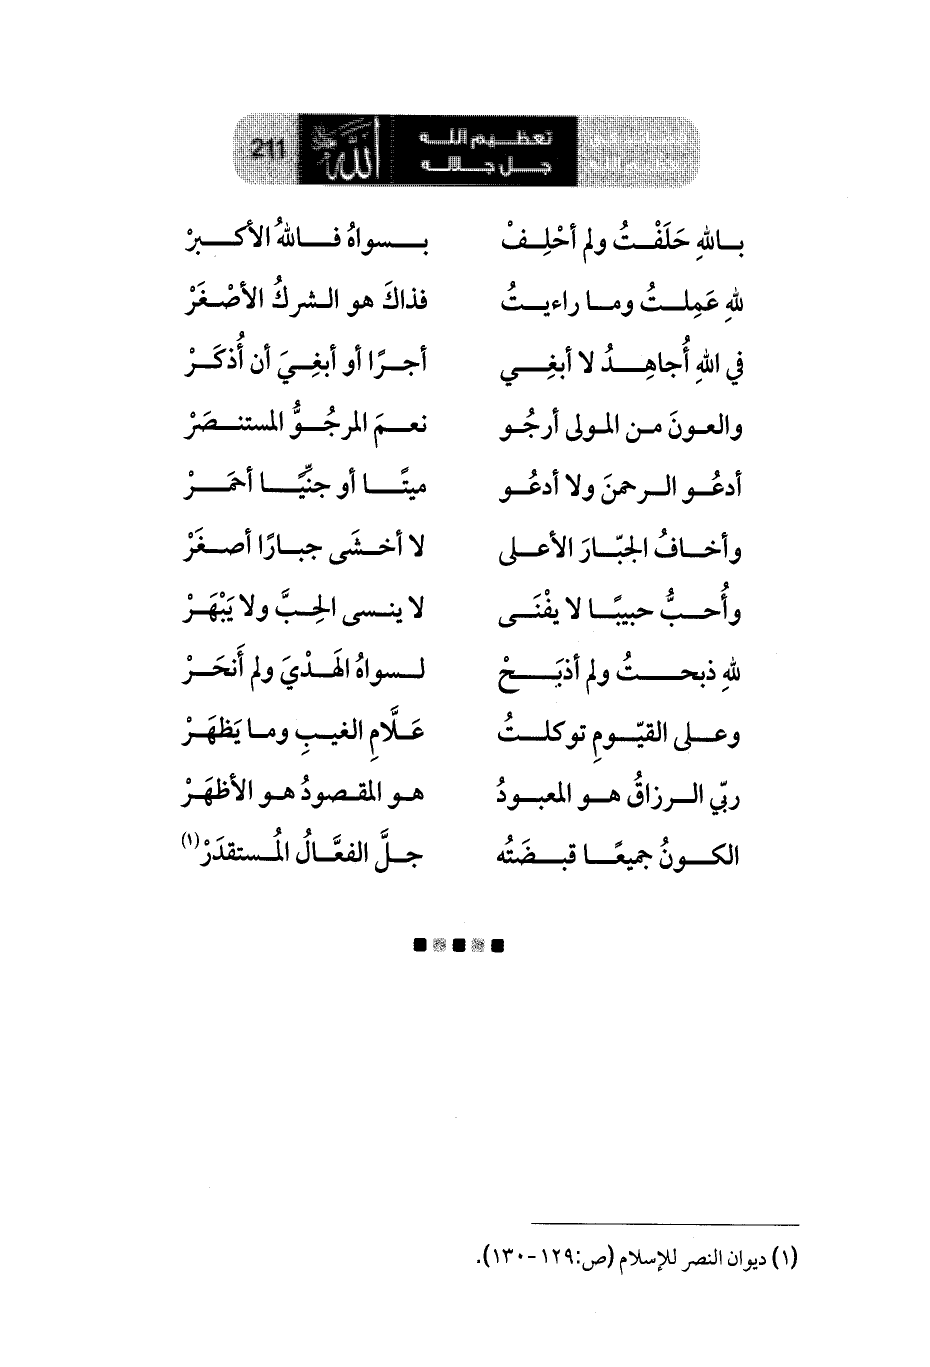 211
الله
تعظيم الله
جل جلاله
بالله حَلَفْتُ ولم أحْلِفْ بسواهُ فاللهُ الأكبرْ
للهِ عَمِلتُ وما راءيتُ فذاكَ هو الشركُ الأصْغَرْ
في اللهِ أُجاهِدُ لا أبغِي أجرًا أو أبغِيَ أن أُذكَرْ
والعونَ من المولى أرجُو نعمَ المرجُوُّ المستنصَرْ
أدعُو الرحمنَ ولا أدعُو ميتًا أو جنِّيًا أحمَرْ
وأخافُ الجبّارَ الأعلى لا أخشَى جبارًا أصغَرْ
وأُحبُّ حبيبًا لا يفْنَى لا ينسى الحِبَّ ولا يَبْهَرْ
للهِ ذبحتُ ولم أذبَحْ لسواهُ الهَدْيَ ولم أَنحَرْ
وعلى القيّومِ توكلتُ عَلَّامِ الغيبِ وما يَظهَرْ
ربّي الرزاقُ هو المعبودُ هو المقصودُ هو الأظهَرْ
الكونُ جميعًا قبضَتُه جلَّ الفعَّالُ المُستقدَرْ(١)
(١) ديوان النصر للإسلام (ص:١٢٩-١٣٠).